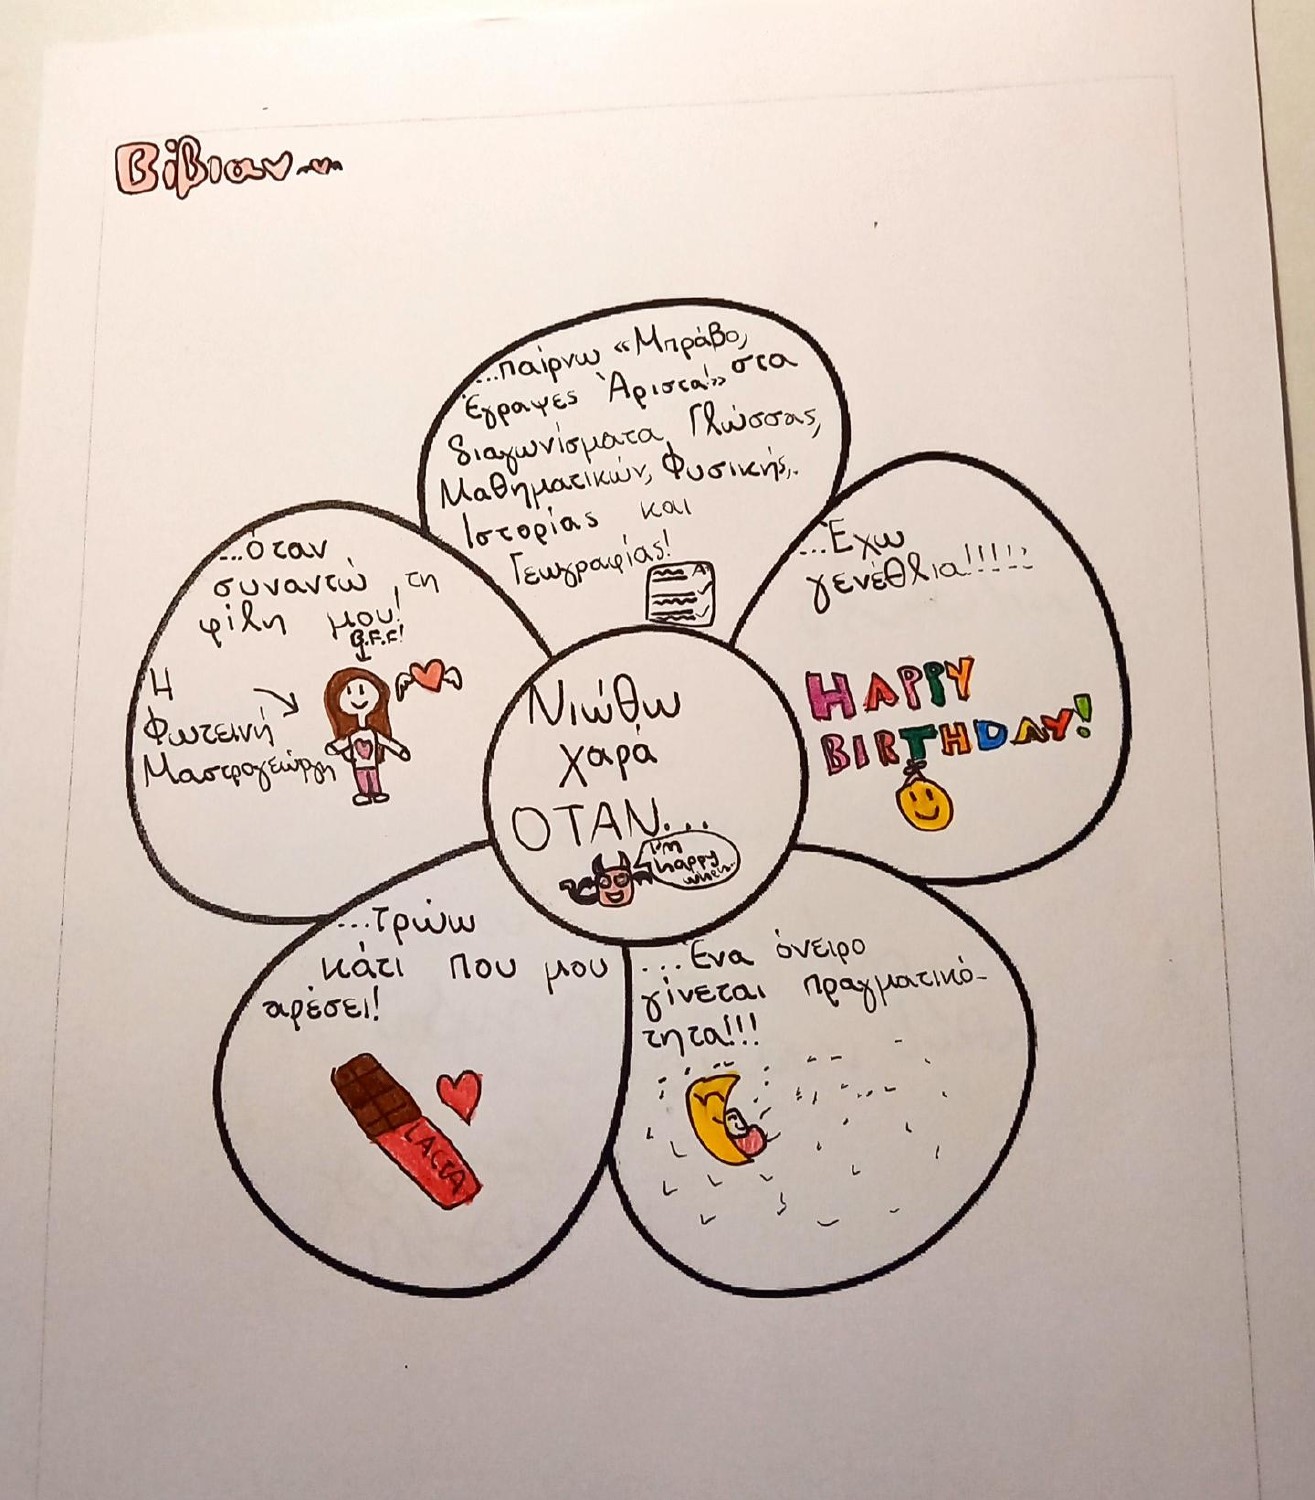 Βίβιαν
...παίρνω «Μπράβο,
Έγραψες Άριστα!» στα
διαγωνίσματα Γλώσσας,
Μαθηματικών, Φυσικής,
Ιστορίας και
Γεωγραφίας!
A
...Έχω
γενέθλια!!!!!
HAPPY
BIRTHDAY!
...όταν
συναντώ τη
φίλη μου!
B.F.F!
Η
Φωτεινή
Μαστρογεώργη
Νιώθω
χαρά
ΟΤΑΝ...
I'm
happy
when..
...τρώω
κάτι που μου
αρέσει!
LACTA
...Ένα όνειρο
γίνεται πραγματικό-
τητα!!!